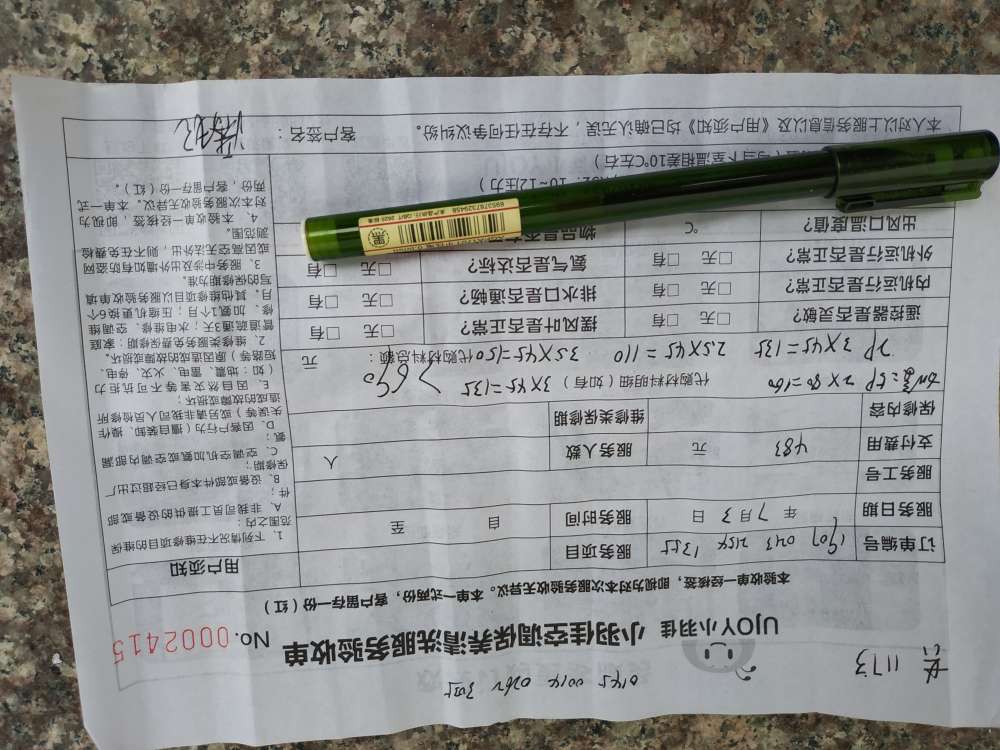 0145 0014 0262
1173
UJOY小羽佳 小羽佳空调保养清洗服务验收单 No. 0002415
本验收单一经核签，即视为对本次服务验收无异议。本单一式两份，客户留存一份（红）
订单编号 1907 0243 2154 1355 服务项目
服务日期 年 7月3日 服务时间 自 至
服务工号
支付费用 483 元 服务人数 人
保修内容 维修类保修期
5P 2X80=160 代购材料明细（如有） 3X45=135
2P 3X45=135 2.5X45=110 3.5X45=150 代购材料总额： 元
>690
遥控器是否灵敏？ □无 □有 摆风叶是否正常？ □无 □有
内机运行是否正常？ □无 □有 排水口是否通畅？ □无 □有
外机运行是否正常？ □无 □有 氨气是否达标？ □无 □有
出风口温度值？ ℃ 物品是否
10~12压力）
与当下室温相差10℃左右）
本人对以上服务信息以及《用户须知》均已确认无误，不存在任何争议纠纷。 客户签名：
用户须知
1、下列情况不在维修项目的维保
范围之内：
A、非我司员工提供的设备或部
件；
B、设备或部件本身已经超过出厂
保修期；
C、空调空机加氨或空调内部漏
氨；
D、客户行为（擅自装卸、操作
失误等）或另请非我司人员检修所
造成的故障或损坏；
E、因自然灾害等不可抗拒力
（如：地震、雷电、火灾、停电、
短路等）原因造成的故障或损坏。
2、维修类服务免费保修期：家庭
管道疏通3天；水电维修、空调维
修、加氨1个月；压缩机更换6个
月。其他维修项目以服务验收单填
写的保修期为准。
3、服务中涉及出外墙如有防盗网
或因高空无法外出，则不在免费检
测范围。
4、本验收单一经核签，即视为
对本次服务验收无异议。本单一式
两份，客户留存一份（红）。
黑
6953787329456